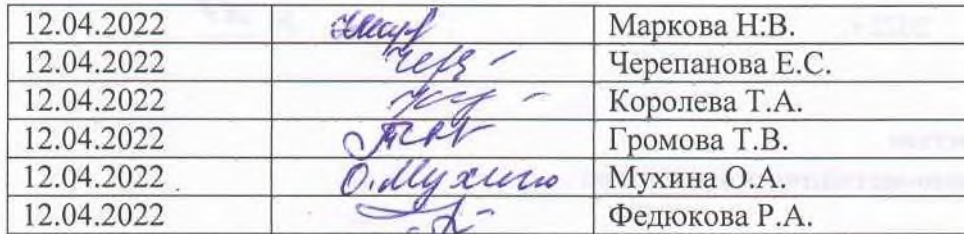 12.04.2022 Маркова Н.В.
12.04.2022 Черепанова Е.С.
12.04.2022 Королева Т.А.
12.04.2022 Громова Т.В.
12.04.2022 О.Мухина Мухина О.А.
12.04.2022 Федюкова Р.А.